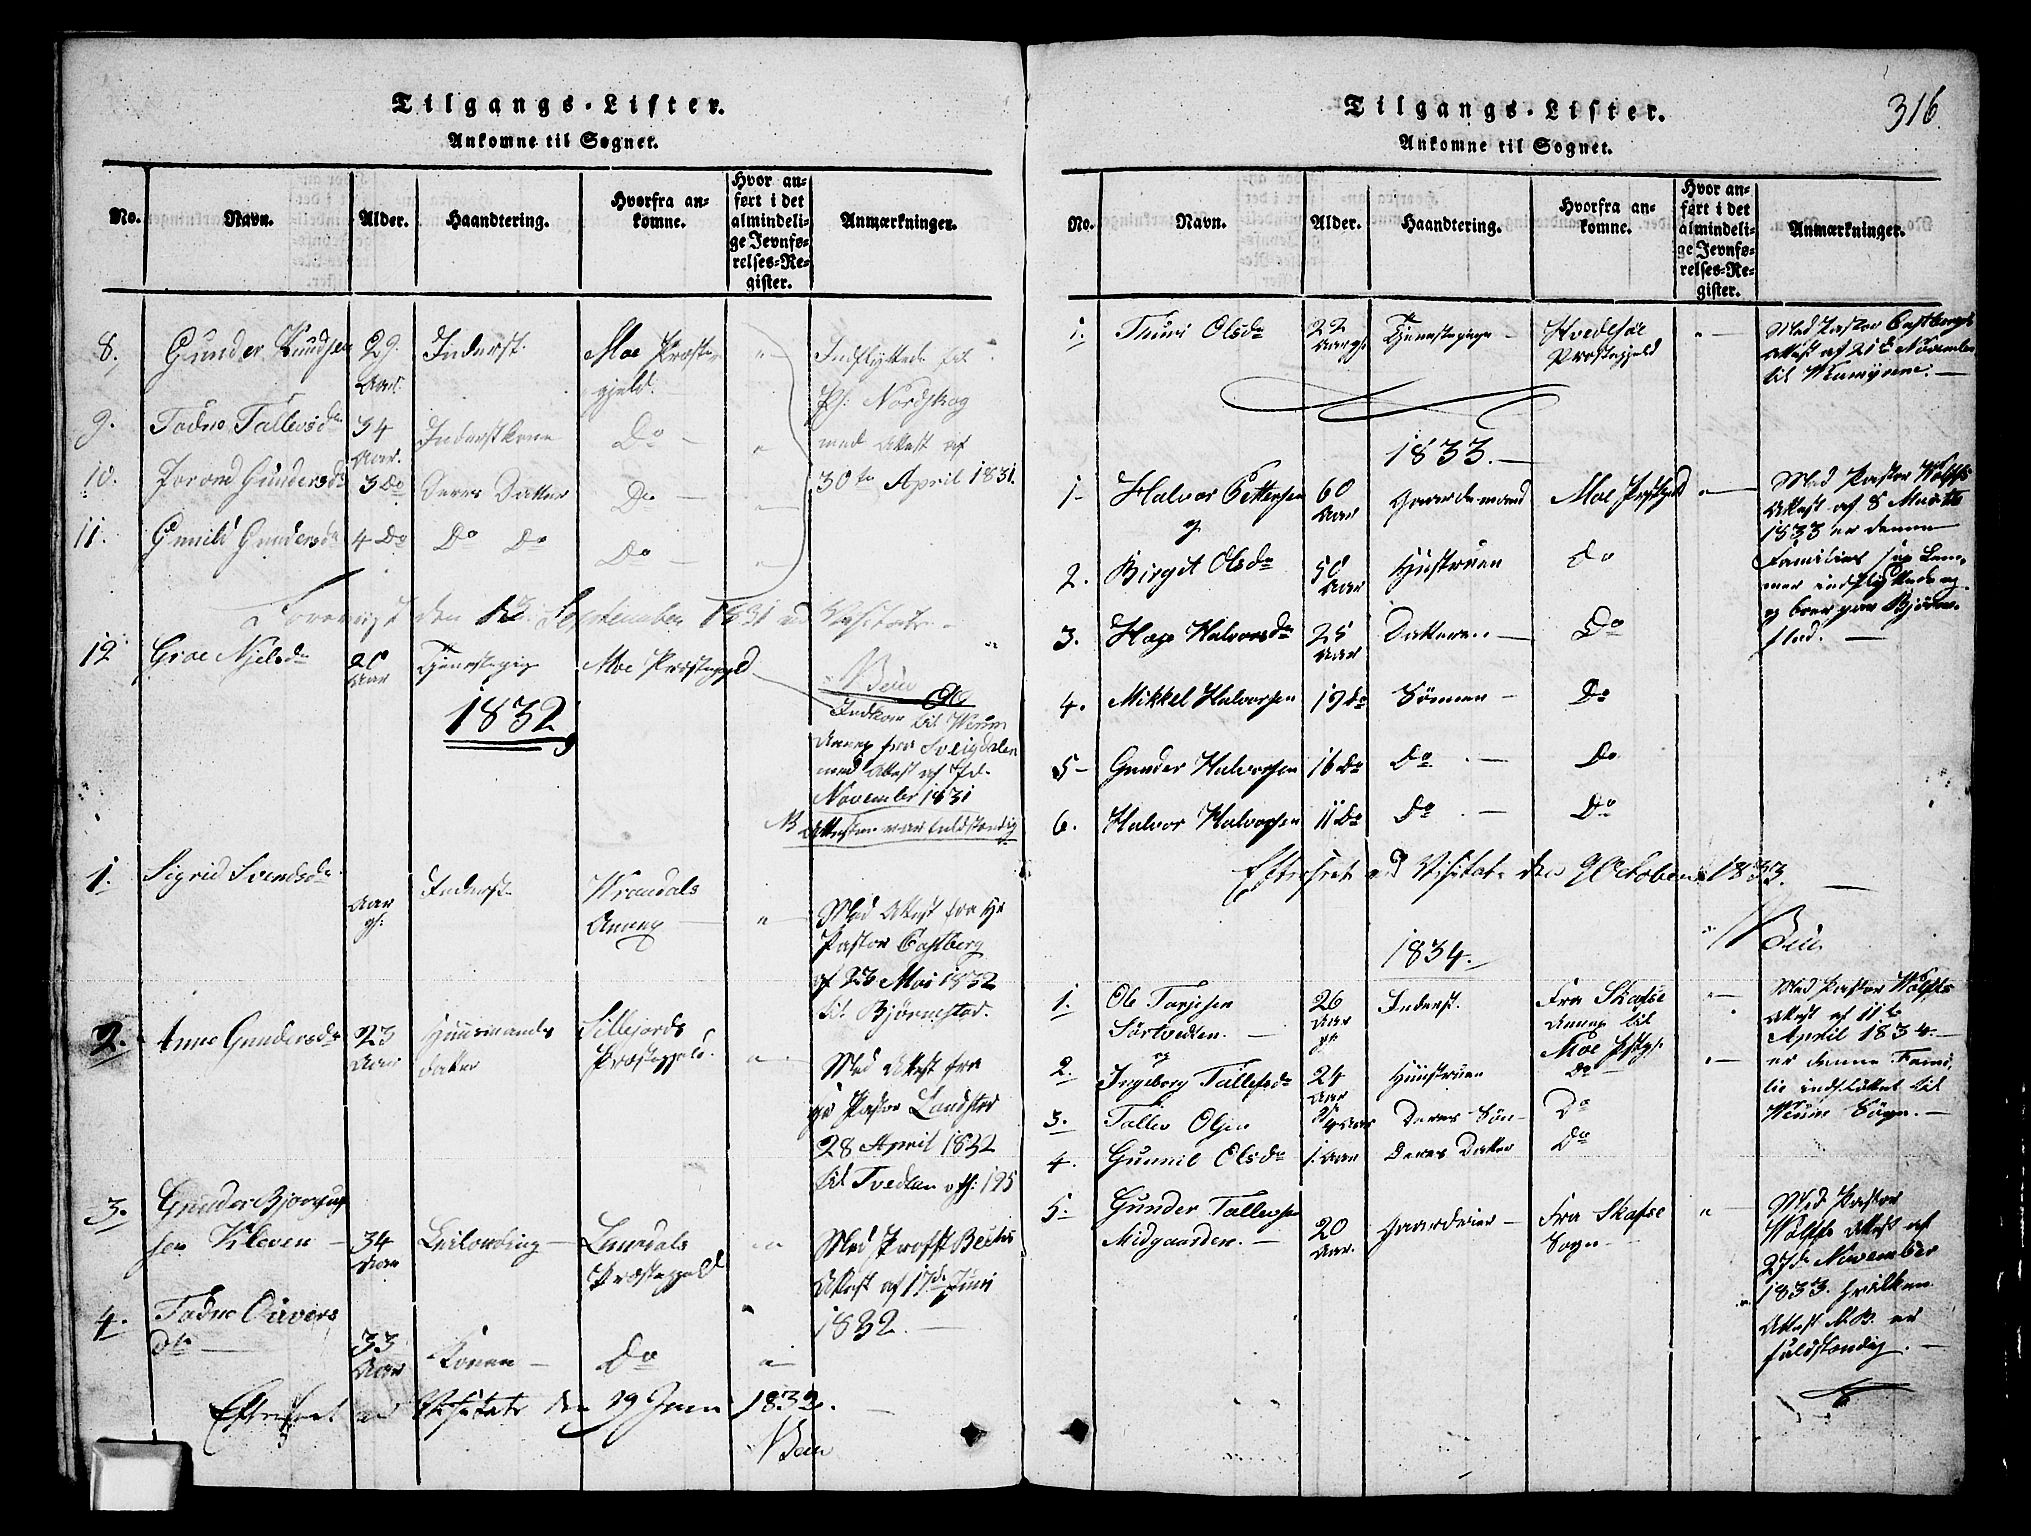 Tilgangs-Lister.
Ankomne til Sognet.
No.
Navn.
Alder.
Haandtering.
Hvorfra an-
komne.
Hvor an-
ført i det
almindeli-
ge Jevnfø-
relses-Re-
gister.
Anmærkninger.
8.
Gunder Knudsen
29.
Aar.
Inderst.
Moe Præste-
gjeld.
"
Indflyttede
Nordskog
med Attest af
30te April 1831.
9.
Tadne Tallevsdr
34
Aar.
Inderstkone
Do
"
10.
Jorond Gundersdr
3 Do
Deres Datter
Do
11.
Gunild Gundersdr
4 Do
Do Do
Do
Forevist den September 1831 ved Visitats
12
Groe Njelsdr
20
Aar
Tjenestepige
Moe Præstegjeld
Indkom til Wrum
Annex fra
med Attest af
November 1831
NB Attesten var fuldstændig
1832
1.
Sigrid Svendsdr
Aar
gl:
Inderst
Wraadals
Annex
"
Med Attest fra Hr
Pastor Castberg
af 23 Mai 1832
til Bjørnstad.
2.
Anne Gundersdr
23
Aar
Huusmands
datter
Sillejords
Præstegjeld.
Med Attest fra
Hr Pastor Landstad
28 April 1832
til Tvedten
3.
Gunder Bjørgus
sen Kleven
34
Aar
Leilænding
Laurdals
Præstegjeld
Med Profst
Attest af 17de Juni
1832.
4.
Tadne Olivers
dtr
33
Aar
Konen
Do
Efterseet ved Visitats den 19 Juni 1832.
316.
Tilgangs-Lister.
Ankomne til Sognet.
No.
Navn.
Alder.
Haandtering.
Hvorfra an-
komne.
Hvor an-
ført i det
almindeli-
ge Jevnfø-
relses-Re-
gister.
Anmærkninger.
1.
Thuri Olsdr
22
Aar gl.
Tjenestepige
Hvedesøe
Præstegjeld
Med Pastor Castbergs
Attest af 21de November
til
1833.
1
Halvor Pettersen
og
60
Aar
Gaardemand
Moe Præstegjeld
Med Pastor Wolffs
Attest af 8 Marts
1833 er denne
Families sex Lem-
mer indflyttede og
og boer paa Bjørn-
stad.
2.
Birgit Olsdr
50
Aar
Hustruen
Do
3.
Hæge Halvorsdr
25
Aar
Datteren
Do
4.
Mikkel Halvorsen
19 Do
Sønnen
Do
5
Gunder Halvorsen
16 Do
Do
Do
6.
Halvor Halvorsen
11 Do
Do
Do
Efterseet ved Visitats den 9 October 1833.
1834.
1.
Ole Torjesen
Sørtvedten.
og
26
Aar
gl:
Inderst.
Fra Skafse
Annex til
Moe Pstgj.
Med Pastor Wolffs
Attest af 11te
April 1834
er denne Fami-
lie indflyttet til
Wrum Sogn.
2.
Ingeborg Tallefsdr
24
Aar
Hustruen
Do
3.
Tallev Olsen
Deres Søn
Do
4.
Gunnil Olsdr
1. Aar
Deres Datter
Do
5.
Gunder Tallevsen
Midgaarden.
20
Aar.
Gaardeier
Fra Skafse
Sogn
"
Med Pastor
Wolffs Attest af
27de November
1833. hvilken
Attest N.B. er
fuldstændig.